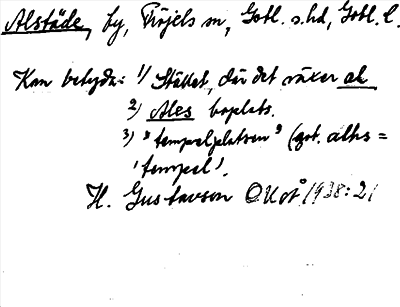 Alstäde, by, Fröjels sn, Gotl. s.hd, Gotl. l.
Kan betyda: 1) Stället, där det växer al
2) Ales boplats.
3) "tempelplatsen" (got. alhs =
'tempel'.
H. Gustavson 1938:21